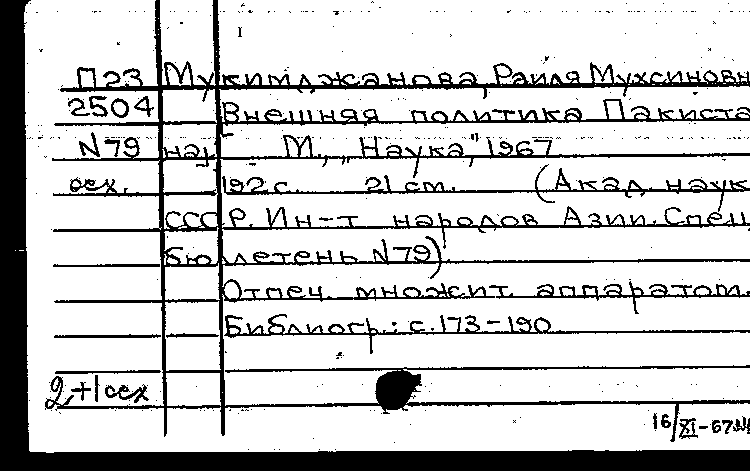 П23 Мукимджанова, Раиля Мухсиновн
2504 Внешняя политика Пакиста
N79 на. М., „Наука," 1967
осх. 192 с. 21 см. (Акад. наук
СССР. Ин-т народов Азии. Спец.
бюллетень N79)
Отпеч. множит. аппаратом.
Библиогр.: с. 173-190
2+1 осх
16/XI-67